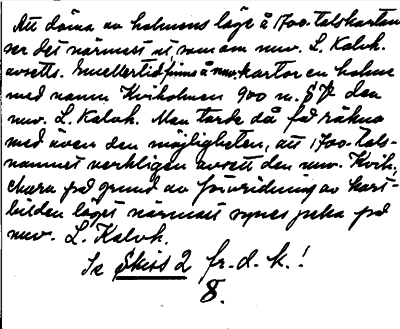 Att döma av holmens läge å 1700-talskartan
ser det närmast ut som om nuv. L. Kalvh.
avsetts. Emellertid finns å nuv. kartor en holme
med namn Kviholmen 900 m. S den
nuv. L. Kalvh. Man torde då få räkna
med även den möjligheten, att 1700-tals-
namnet verkligen avsett den nuv. Kvih.,
ehuru på grund av förvridning av kart-
bilden läget närmast synes peka på
nuv. L. Kalvh.
Se Skiss 2 fr. d. k.!
8.